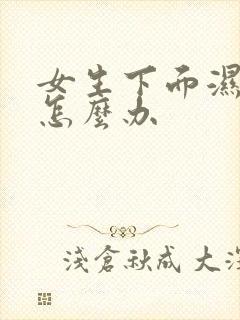 女生下而濕
怎麼办
淺倉秋成 大